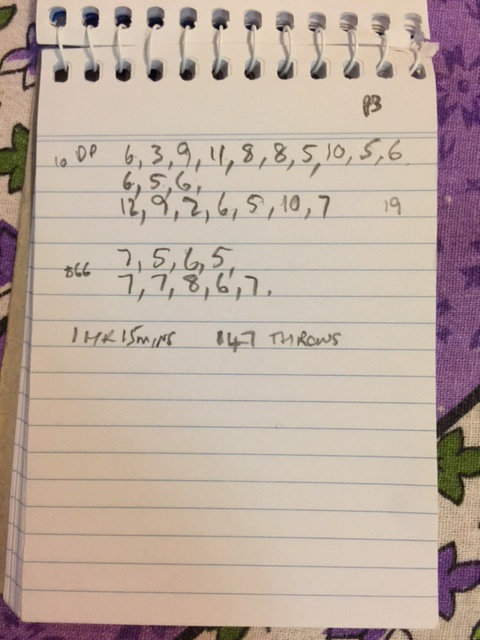 P3
10 DP 6, 3, 9, 11, 8, 8, 5, 10, 5, 6.
6, 5, 6,
12, 9, 2, 6, 5, 10, 7 19
7, 5, 6, 5,
866 7, 7, 8, 6, 7.
1 HR 15 MINS 147 THROWS